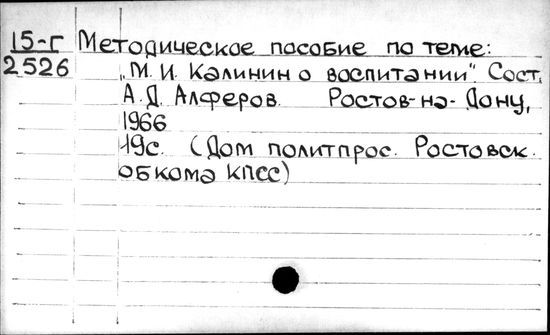 15-Г Методическое пособие по теме:
2526 „М. И. Калинин о воспитании". Сост.
А. Д. Алферов. Ростов-на-Дону,
1966
19с. (Дом политпрос. Ростовск.
обкома КПСС)